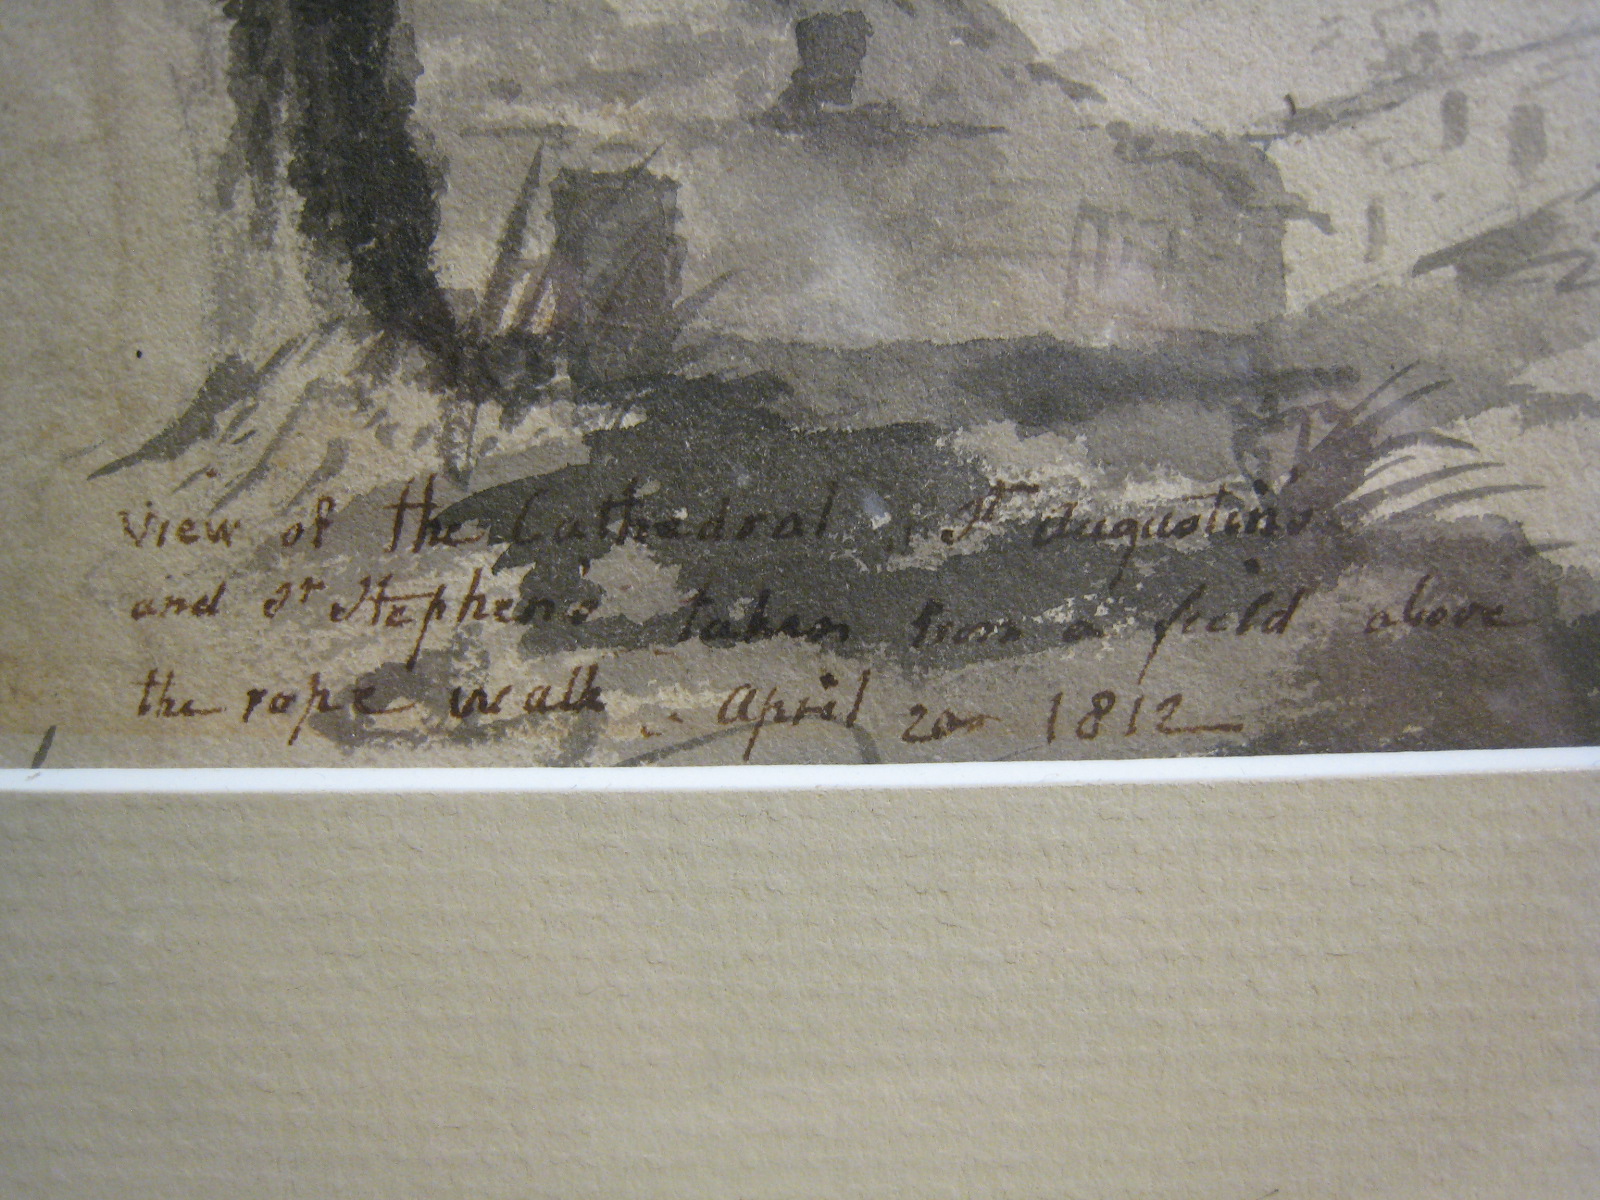 view of the Cathedral St Augustin's
and St Stephen's taken from a field above
the rope walk . April 20 1812